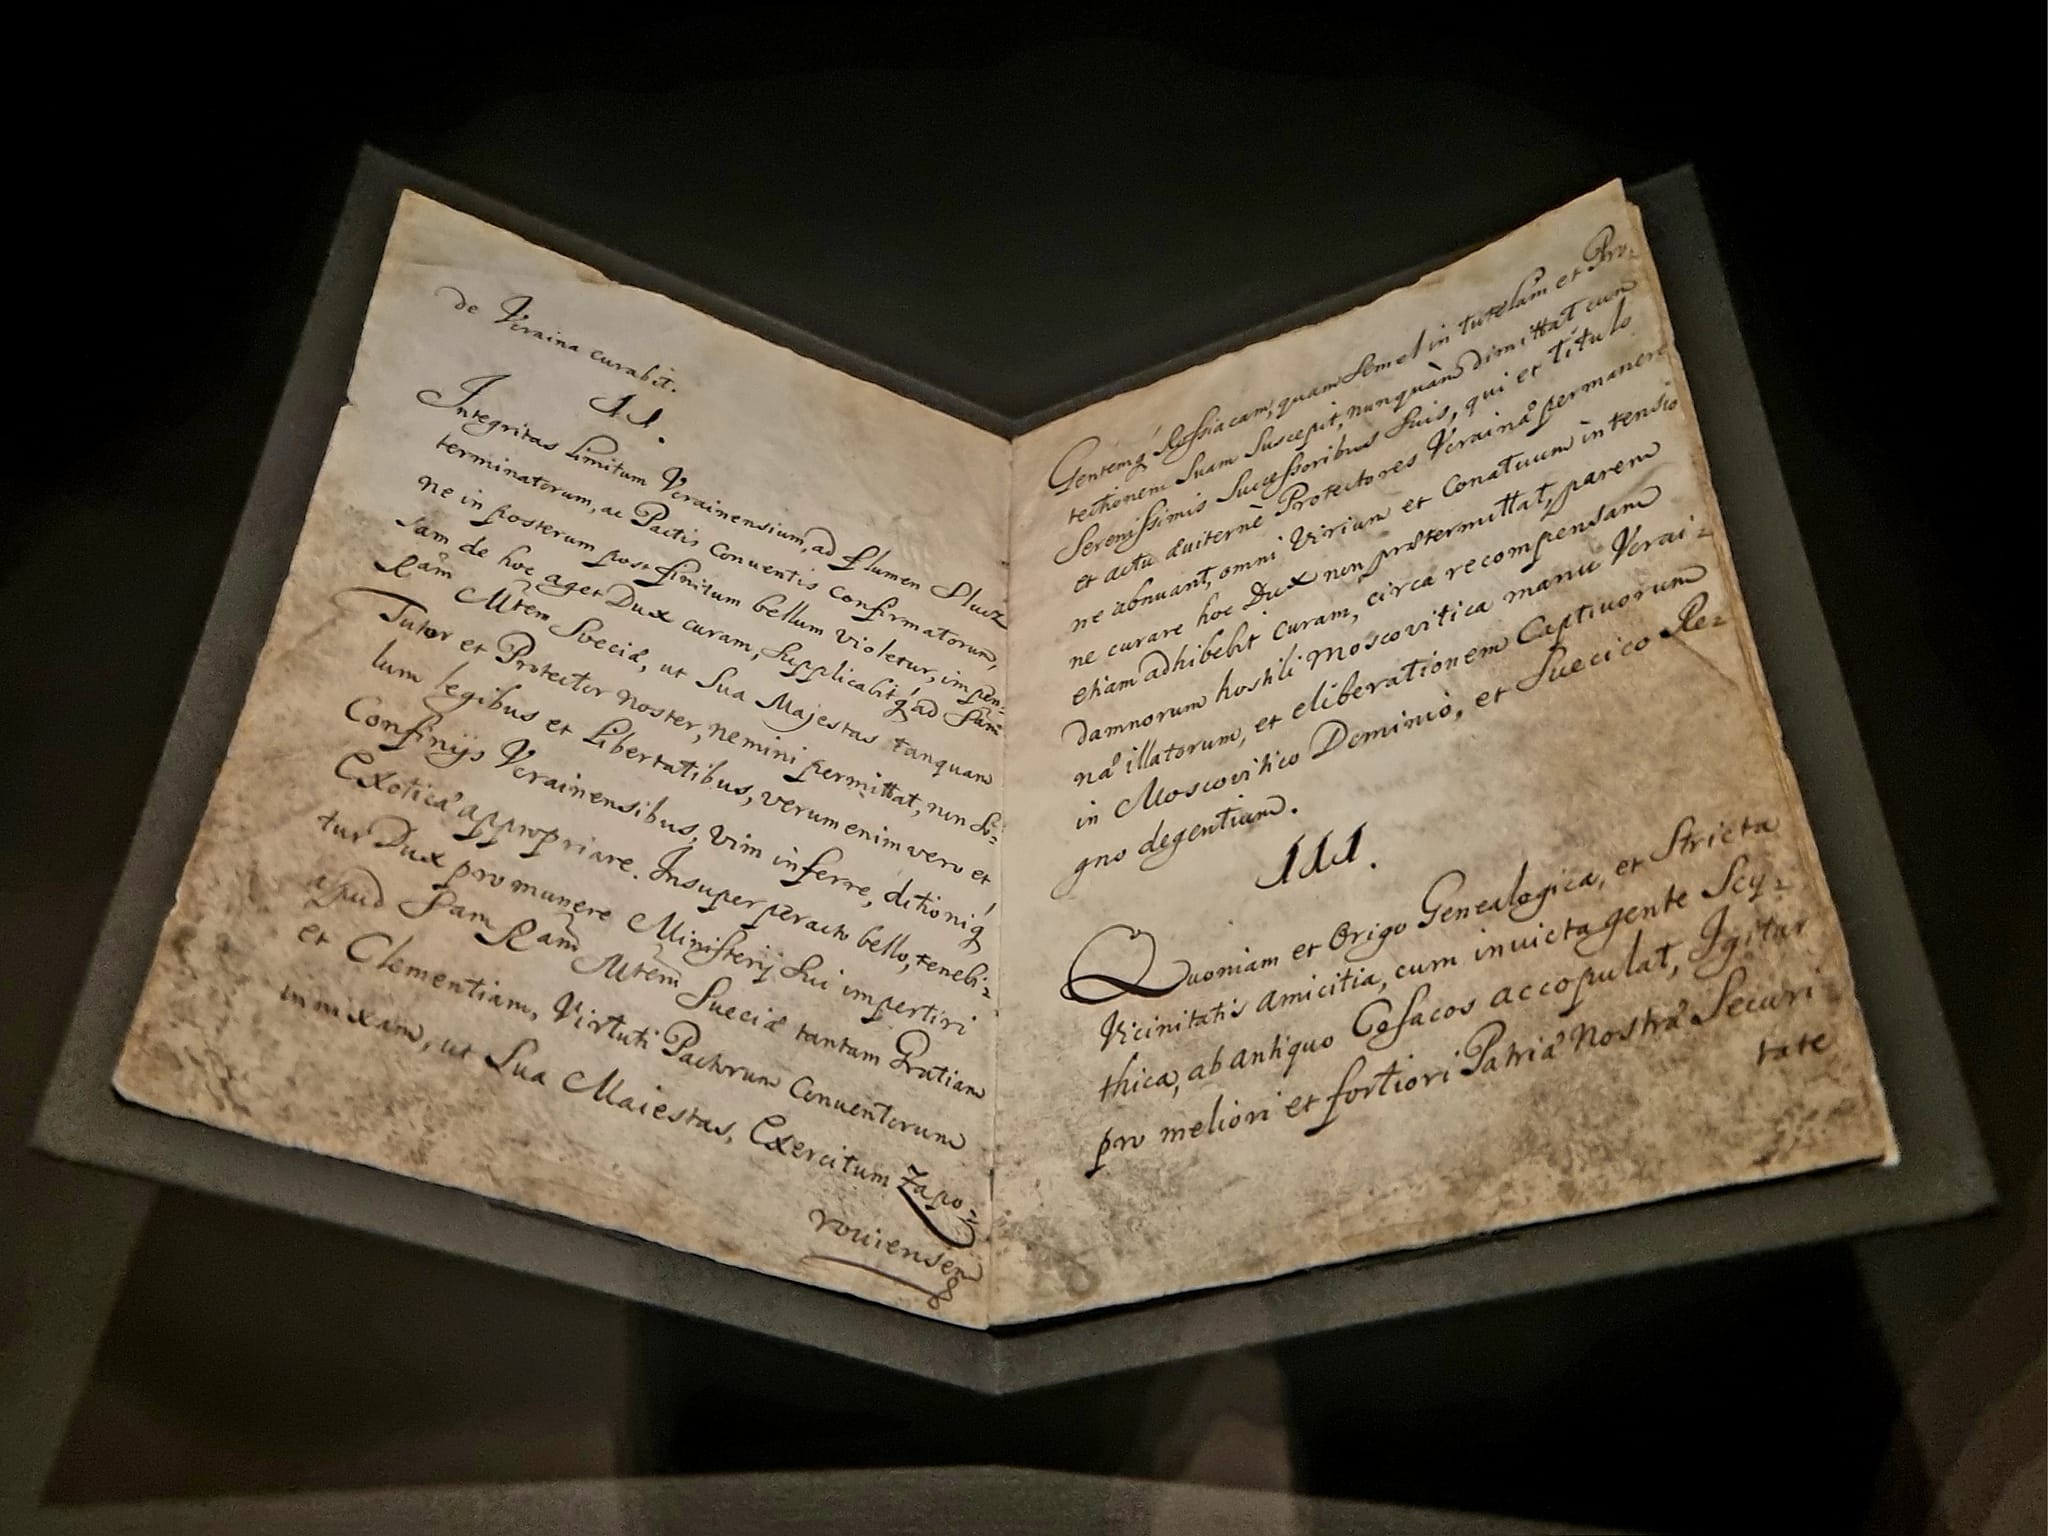 de Vcraina curabit.
II.
Integritas limitum Vcrainensium, ad flumen Slucz
terminatorum, ac Pactis Conuentis Confirmatorum,
ne in posterum post finitum bellum violetur, impen-
sam de hoc aget Dux curam, Supplicabitq́ ad Sam
Ram Mtem Sveciæ, ut Sua Majestas tanquam
Tutor et Protector noster, nemini permittat, non So=
lum legibus et Libertatibus, verumenim vero et
Confinijs Vcrainensibus, vim inferre, ditioniq́
Exoticæ appropriare. Insuper peracto bello, tenebi=
tur Dux pro munere Ministerij Sui impertiri
apud Sam Ram Mtem Sueciæ tantam Gratiam
et Clementiam, Virtuti Pactorum Conuentorum
innixam, ut Sua Maiestas, Exercitum Zapo=
rouiensem
Gentemq́ Rossiacam, quam Semel in tutelam et Pro=
tectionem Suam Suscepit, nunquam dimittat cum
Serenissimis Successoribus Suis, qui et titulo
et actu æuiternè Protectores Vcrainæ permanere
ne abnuant, omni Virium et Conatuum intensio
ne curare hoc Dux non prætermittat, parem
etiam adhibebit curam, circa recompensam
damnorum hostili Moscovitica manu Vcrai=
næ illatorum, et eliberationem Captiuorum
in Moscovitico Dominio, et Suecico Re=
gno degentium.
III.
Quoniam et Origo Genealogica, et Stricta
Vicinitatis amicitia, cum invicta gente Scy=
thica, ab antiquo Cosacos accopulat, Igitur
pro meliori et fortiori Patriæ nostræ Securi
tate